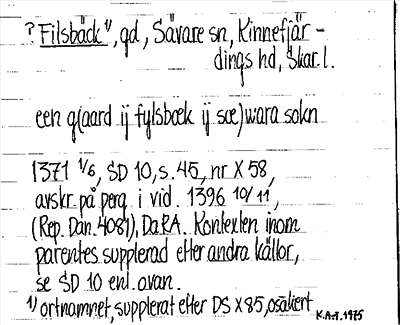 ? Filsbäck 1), gd, Sävare sn, Kinnefjär-
dings hd, Skar. l.
een g(aard ij fylsbœk ij sœ)wara sokn
1371 1/6, SD 10, s. 45, nr X 58,
avskr. på perg. i vid. 1396 10/11,
(Rep. Dan. 4081), DaRA. Kontexten inom
parentes supplerad efter andra källor,
se SD 10 enl. ovan.
1) ortnamnet, supplerat efter DS X 85, osäkert
K.A-J. 1975